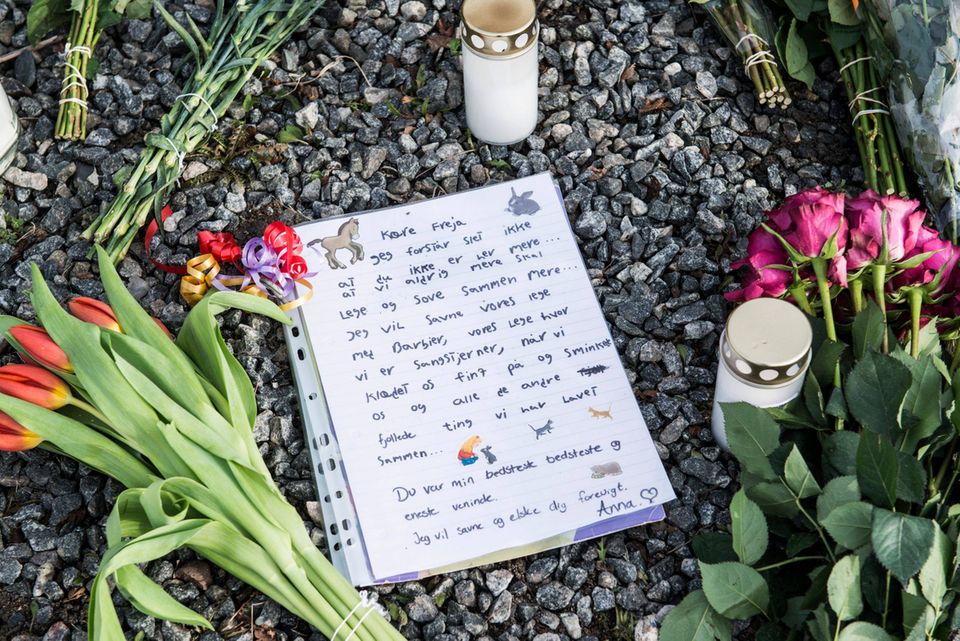 Kære Freja
Jeg forstår slet ikke
at du ikke er her mere...
at vi aldrig mere skal
Lege og sove sammen mere...
Jeg vil savne vores lege
med Barbier, vores lege hvor
vi er sangstjerner, når vi
klædet os fint på og sminket
os og alle de andre
fjollede ting vi har lavet
sammen...
Du var min bedsteste bedsteste og
eneste veninde.
Jeg vil savne og elske dig forevigt.
Anna.